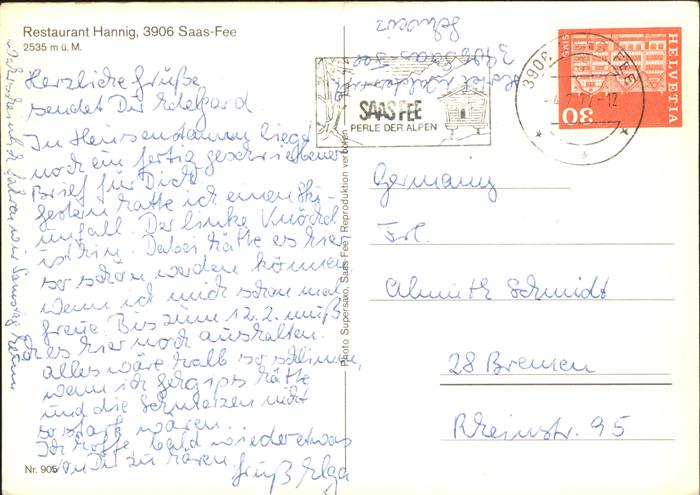 Restaurant Hannig, 3906 Saas-Fee
2535 m ü. M.
Herzliche Grüße
sendet Dir Edelgard.
In Heinsenstamm liegt
noch ein fertig geschriebener
Brief für Dich
Gestern hatte ich einen Ski-
unfall. Der linke Knöchel
ist hin. Dabei hätte es hier
so schön werden können,
wenn ich mich schon mal
freue. Bis zum 12.2. muß
ich es hier noch aushalten.
alles wäre halb so schlimm,
wenn ich Gehgips hätte
und die Schmerzen nicht
so stark wären..
Ich hoffe bald wieder etwas
von Dir zu hören.
Gruß
Wahrscheinlich fahren wir Samstag heim
Nr. 905
Photo Supersaxo, Saas-Fee / Reproduktion verboten
Hotel
3906 Saas Fee
Schweiz
SAAS FEE
PERLE DER ALPEN
3906
FEE
GAIS
30
HELVETIA
Germany
Frl.
Almuth Schmidt
28 Bremen
Rheinstr. 95